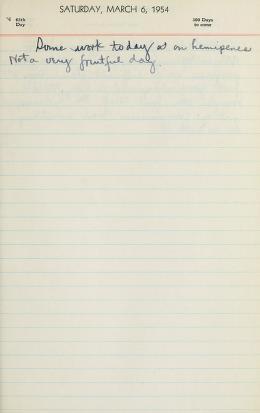 SATURDAY, MARCH 6, 1954
65th
Day
300 Days
to come
Some work today as on hemipenes
Not a very fruitful day.